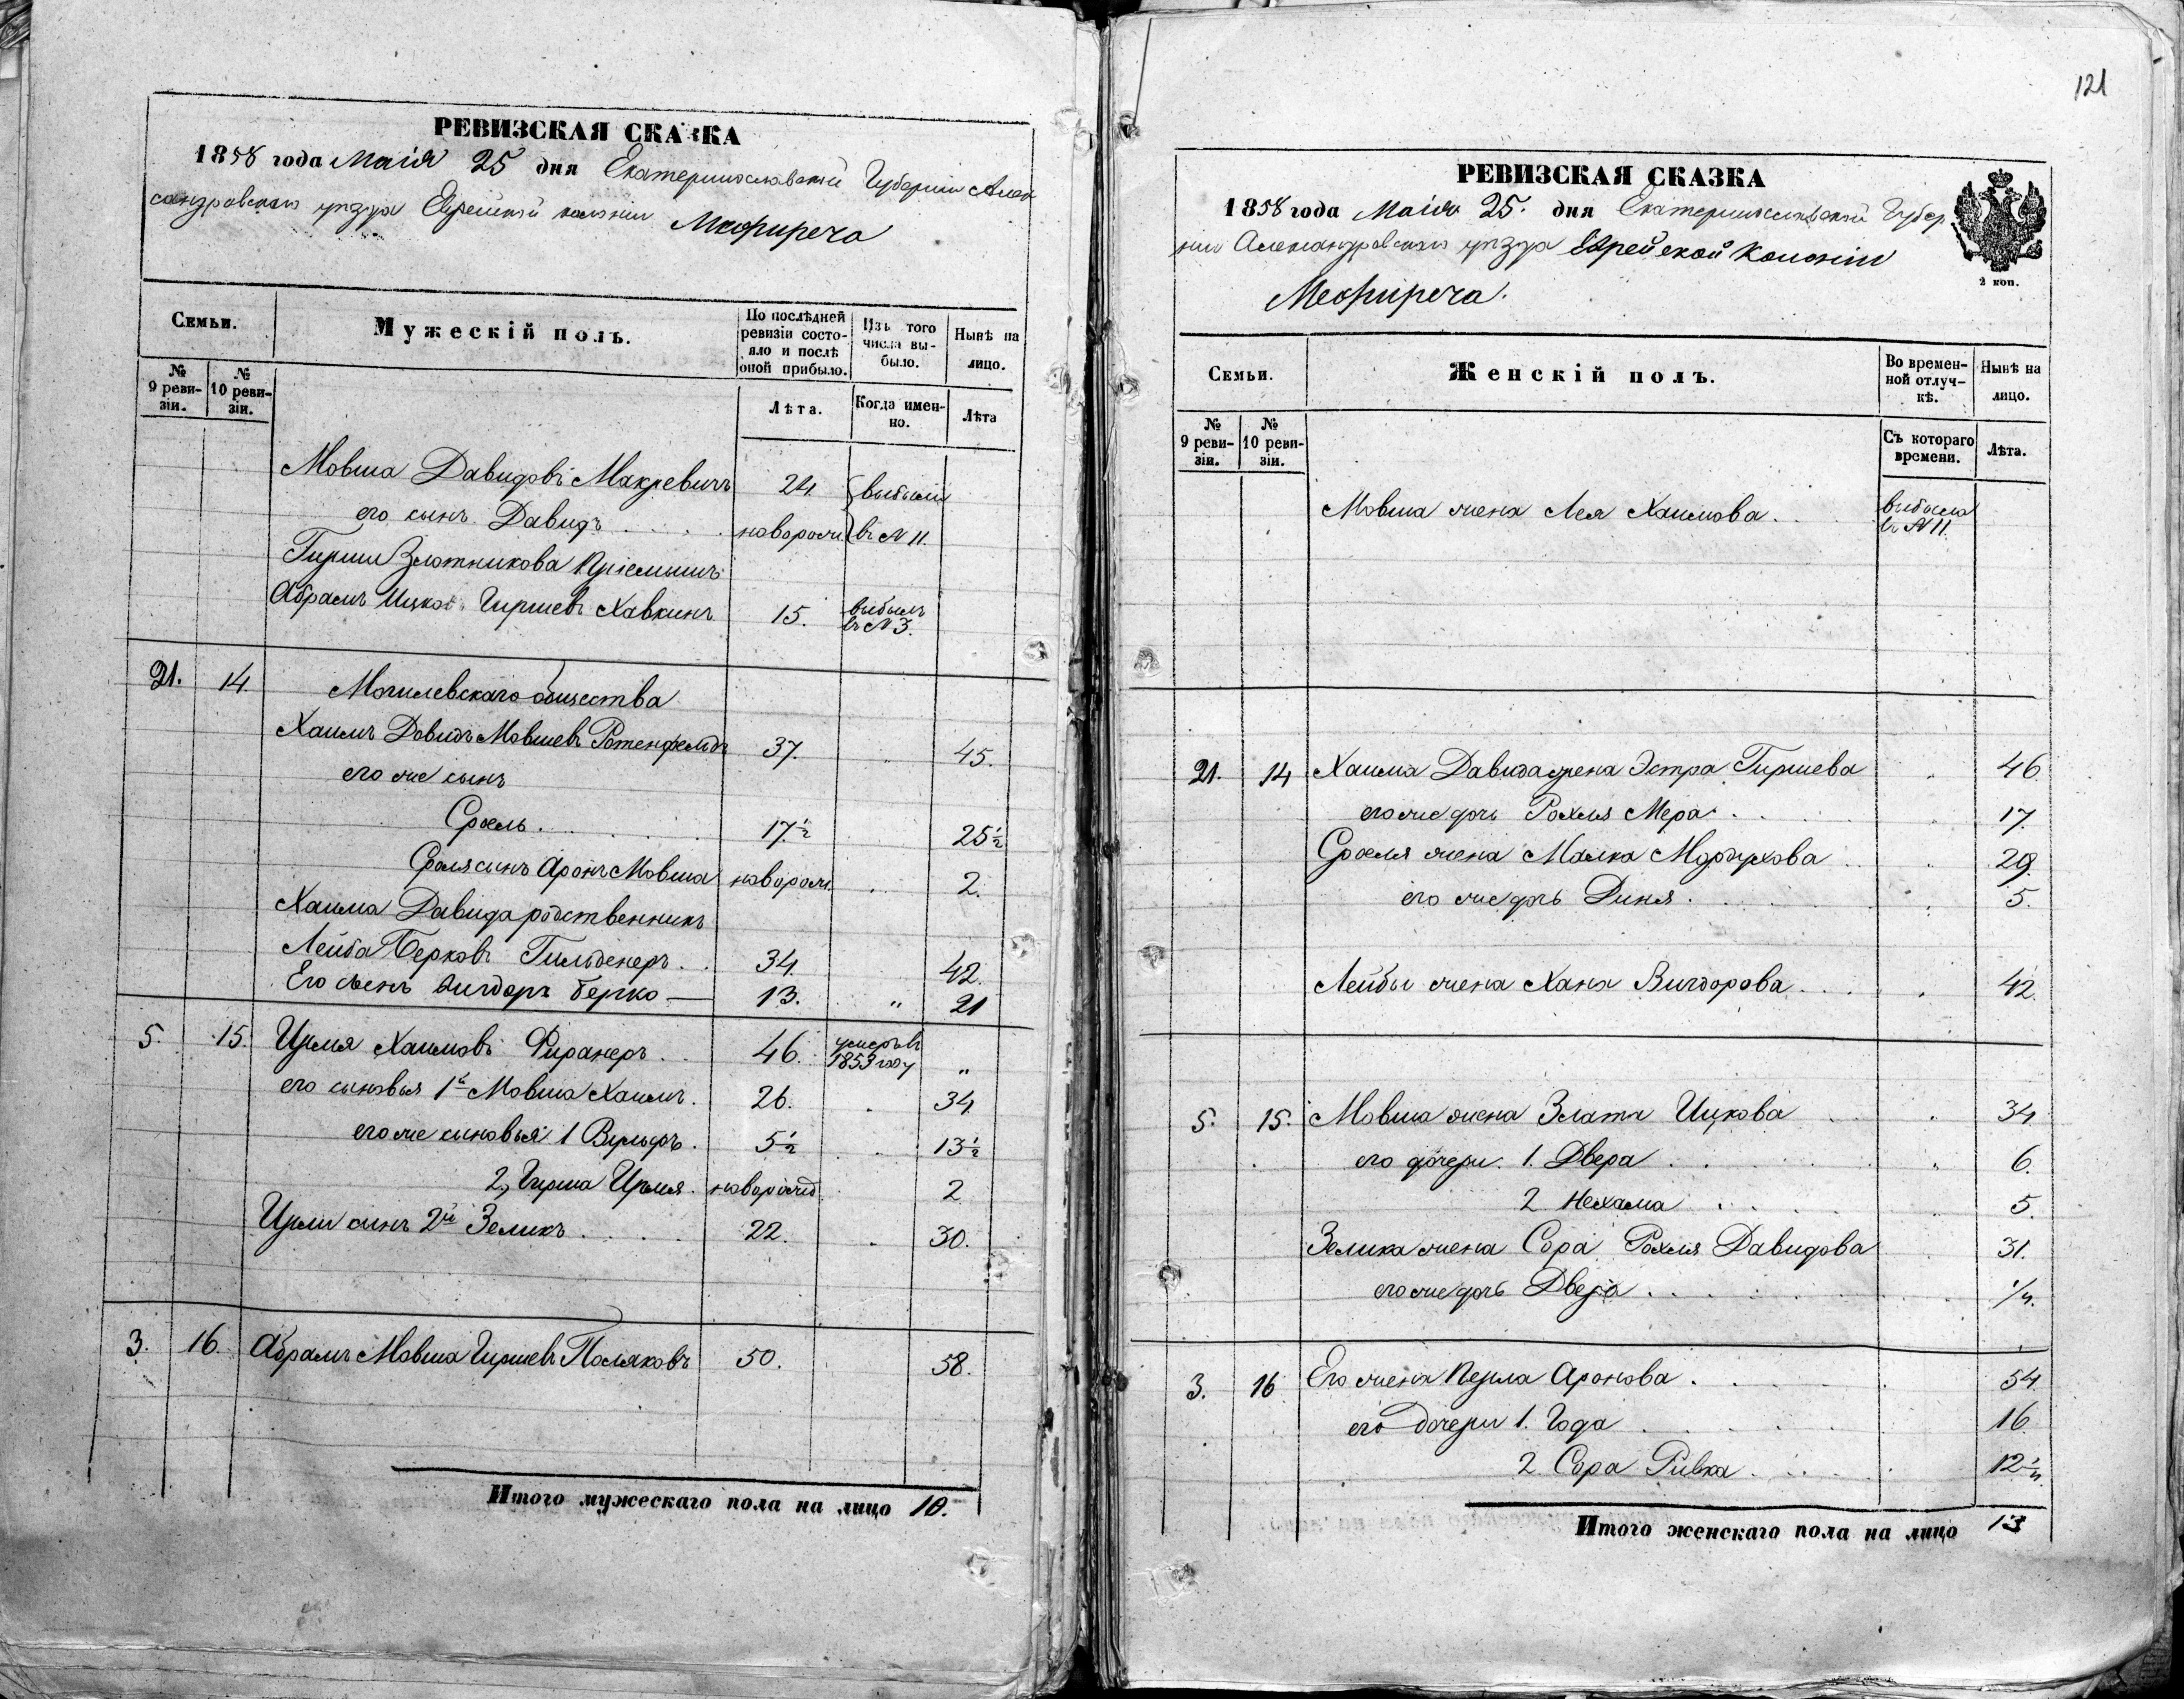 РЕВИЗСКАЯ СКАЗКА
1858 года Маія 25 дня Екатеринославской Губерніи Алек
сандровскаго уѣзда Еврейской колоніи Межиреча
Семьи.
Мужескій полъ.
По послѣдней ревизіи состояло и послѣ оной прибыло.
Изъ того числа выбыло.
Нынѣ на лицо.
№ 9 ревизіи.
№ 10 ревизіи.
Лѣта.
Когда именно.
Лѣта
Мовша Давидовъ Макревичъ 24. выбыли
его сынъ Давидъ новорож. въ № 11.
Гирши Злотникова Пріемышъ
Абрамъ Ицко Гиршевъ Хавкинъ 15. выбылъ въ № 3.
21. 14. Могилевскаго общества
Хаимъ Давидъ Мовшевъ Ротенфельдъ 37. 45.
его же сынъ
Сроель 17½ 25½
Сроля сынъ Аронъ Мовша новорож. 2.
Хаима Давида родственникъ
Лейба Берковъ Гильденеръ 34. 42.
Его сынъ Вигдоръ Берко — 13. " 21
5. 15. Цемя Хаимовъ Фиранеръ 46. умеръ въ 1853 году "
его сыновья 1й Мовша Хаимъ. 26. 34
его же сыновья 1 Вульфъ. 5½ 13½
2, Гирша Цемя. новорожд. 2
сынъ 2й Зеликъ 22. 30.
3. 16. Абрамъ Мовша Гиршевъ Поляковъ 50. 58.
Итого мужескаго пола на лицо 10.
121
РЕВИЗСКАЯ СКАЗКА
1858 года Маія 25. дня Екатеринославской Губер
ніи Александровскаго уѣзда Еврейской Колоніи
Межиреча.
2 коп.
Семьи.
Женскій полъ.
Во временной отлучкѣ.
Нынѣ на лицо.
№ 9 ревизіи.
№ 10 ревизіи.
Съ котораго времени.
Лѣта.
Мовша жена Лея Хаимова. выбыла въ № 11.
21. 14 Хаима Давида жена Эстра Гиршева 46
его же дочь Рохля Мера 17.
Сроеля жена Малка Мордухова 29.
его же дочь Диня. 5.
Лейбы жена Хана Вигдорова 42.
5. 15. Мовша жена Злата Ицкова 34
его дочери. 1. Двера 6.
2. Нехама 5.
Зелика жена Сора Рохля Давидова 31.
его же дочь Двера ¼.
3. 16 Его жена Перла Аронова. 54.
его дочери 1. Года 16
2. Сора Ривка 12¼
Итого женскаго пола на лицо 13